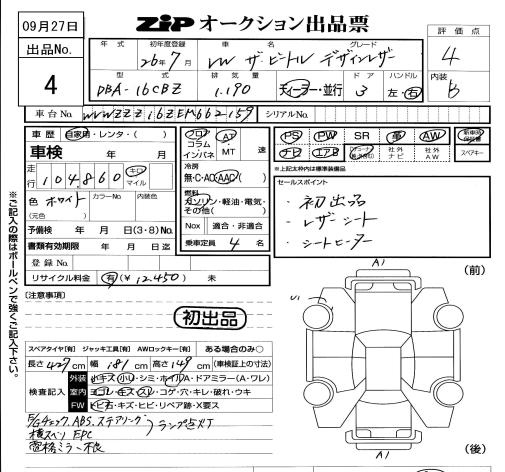 09月27日
ZIP オークション出品票
評価点
出品No.
4
年式
初年度登録
車名
グレード
26年7月
VW ザ・ビートル デザインレザー
4
型式
排気量
ドア
ハンドル
内装
DBA-16CBZ
1.190
ディーラー・並行
3
左・右
b
車台No.
WVWZZZ16ZEM662159
シリアルNo.
車歴
自家用・レンタ・( )
フロア
コラム
インパネ
AT
MT
速
PS
PW
SR
革
AW
新車時保証書
車検
年 月 日
ナビ
エアB
社外ナビ
社外AW
スペアキー
走行
104,860
キロ
マイル
冷房
無・C・AC・AAC( )
※上記太枠内は標準装備品
色
ホワイト
(元色)
カラーNo.
内装色
燃料
ガソリン・軽油・電気・その他( )
セールスポイント
・初出品
・レザーシート
・シートヒーター
予備検
年 月 日(3・8)No.
Nox
適合・非適合
書類有効期限
年 月 日迄
乗車定員
4名
登録No.
リサイクル料金
有(¥12,450)
未
※ご記入の際はボールペンで強くご記入下さい。
[注意事項]
A1
(前)
U1
初出品
スペアタイヤ[有] ジャッキ工具[有] AWロックキー[有] ある場合のみ○
長さ427cm 幅181cm 高さ149cm(車検証上の寸法)
検査記入
外装
小キズ・小凹・シミ・ホイルA・ドアミラー(A・ワレ)
室内
ヨゴレ・キズ・スレ・コゲ・穴・キレ・破れ・ウキ
FW
トビ石・キズ・ヒビ・リペア跡・X要ス
E/Gチェック、ABS、ステアリング
横スベリ EPC
ランプ点灯
電格ミラー不良
A1
(後)